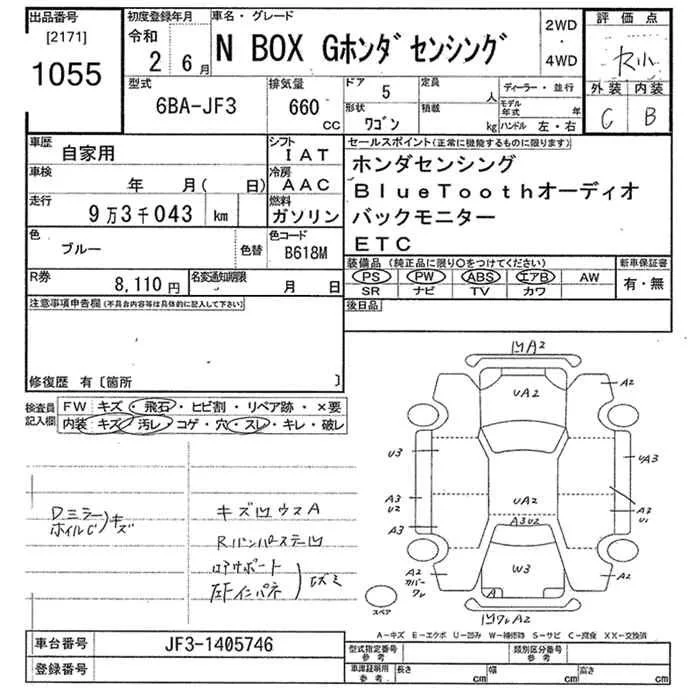 出品番号
[2171]
1055
初度登録年月
令和
2 6月
車名・グレード
N BOX Gホンダセンシング
2WD
・
4WD
評価点
外装 内装
C B
型式
6BA-JF3
排気量
660
cc
ドア
5
形状
ワゴン
定員
人
積載
kg
ディーラー・並行
モデル年式 年
ハンドル 左・右
車歴
自家用
車検
年 月( 日)
走行
9万3千043 km
シフト
IAT
冷房
AAC
燃料
ガソリン
色
ブルー
色替
色コード
B618M
R券
8,110円
名変通知期限
月 日
セールスポイント(正常に機能するものに限ります)
ホンダセンシング
BlueToothオーディオ
バックモニター
ETC
装備品 (純正品に限り○をつけてください)
PS PW ABS エアB AW
SR ナビ TV カワ
新車保証書
有・無
後日品
注意事項申告欄(不具合内容等は具体的に記入して下さい)
修復歴 有〔箇所 〕
検査員
記入欄
FW キズ・飛石・ヒビ割・リペア跡・×要
内装 キズ・汚レ・コゲ・穴・スレ・キレ・破レ
Dミラー
ホイルC
キズ
キズ凹ウスA
Rバンパーステー凹
ロアサポート
凹A2
UA2
A2
U3
UA3
UA2
A3
U2
A3U2
A3
A2
U1
W3
A
A2
カバー
ワレ
A2
凹ワレA2
スペア
A-キズ E-エクボ U-凹み W-補修跡 S-サビ C-腐食 XX-交換済
車台番号
JF3-1405746
登録番号
型式指定番号
参考
類別区分番号
参考
車庫証明用
参考
長さ cm
幅 cm
高さ cm